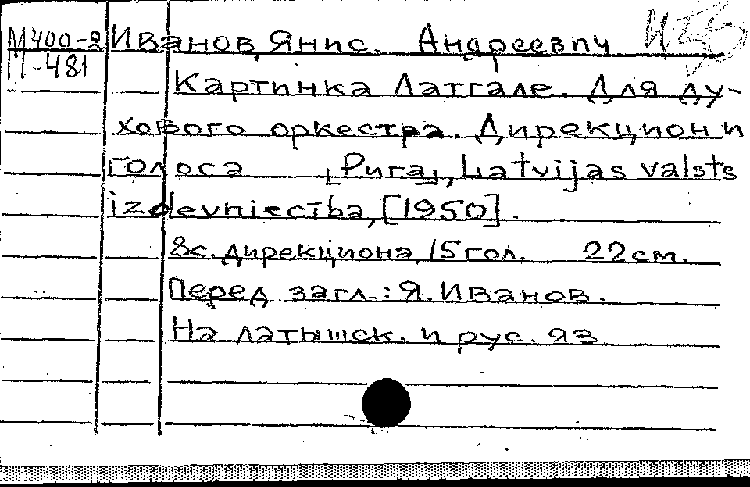 М400-2 Иванов, Янис. Андреевич
П-481
Картинка Латгале. Для ду-
хового оркестра. Дирекцион и
голоса [Рига], Latvijas valsts
izdevniecība, [1950].
8с. дирекциона, 15 гол. 22см.
Перед загл.: Я. Иванов.
На латышск. и рус. яз.